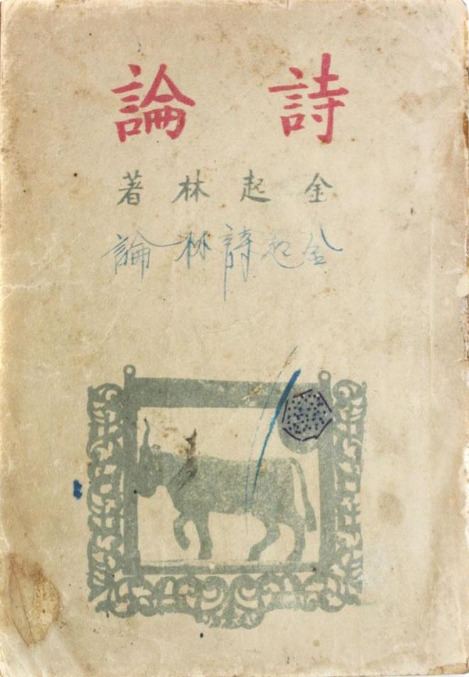 詩論
金起林著
金起詩林論